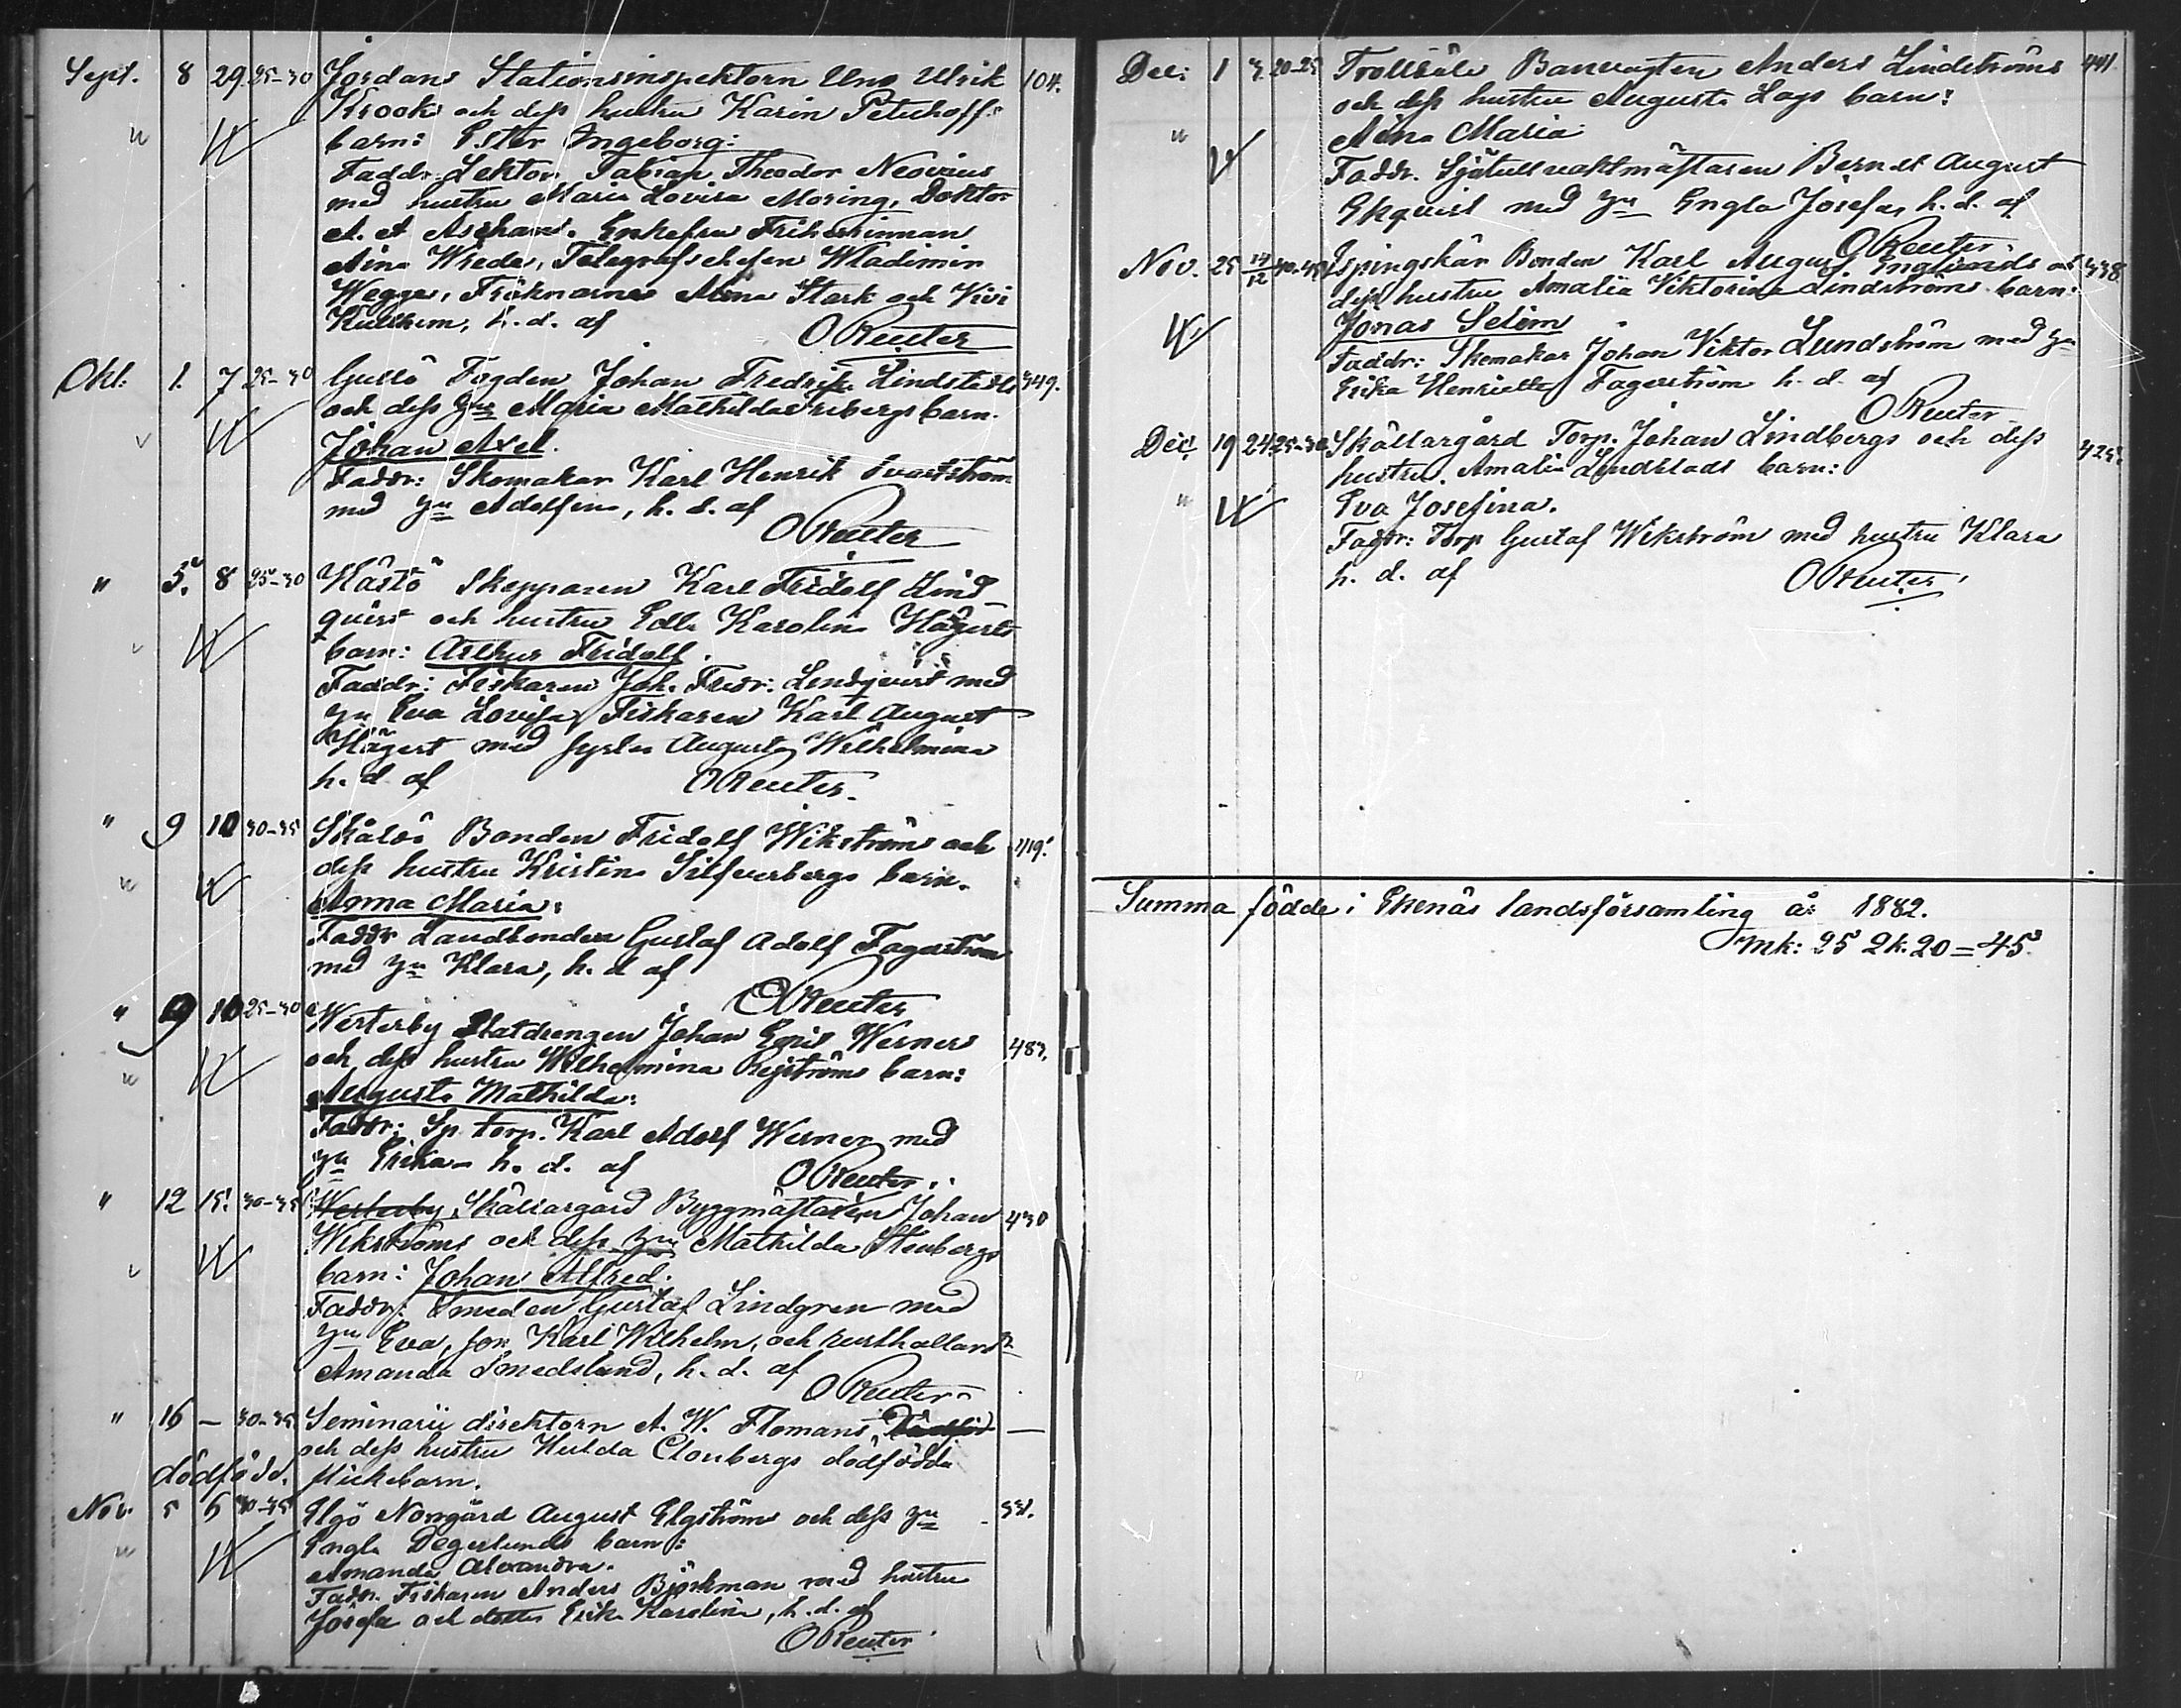 Sept. 8 29. 25-30 Jordans Stationsinspektorn Uno Ulrik 104.
Krooks och dess hustru Karin Peterhoffs
barn: Ester Ingeborg:
Faddr. Lektor Fabian Theodor Neovius
med hustru Maria Lovisa Moring, Doktor
A. A Aschans. Enkefru Friherrinnan
Aina Wrede, Telegrafschefen Wladimir
Wegge, Fröknarne Alma Stark och Vivi
h. d. af
O Reuter
Okt: 1. 7 25-30 Gullö Fogden Johan Fredrik Lindstedts 349.
och dess hu Maria Mathilda barn.
Johan Axel.
Faddr: Skomakar Karl Henrik Svartström
med hu Adolfina, h. d. af
O Reuter
" 5. 8 25-30 Hästö Skepparen Karl Fridolf Lind-
quist och hustru Edla Karolina Hägerts
barn: Arthur Fridolf.
Faddr: Fiskaren Joh. Fredr: Lindqvist med
hu Eva Lovisa, Fiskaren Karl August
Hägert med syster Augusta Wilhelmina
h. d. af O Reuter.
" 9 10 30-35 Skåldö Bonden Fridolf Wikströms och 119.
dess hustru Kristina Silfverbergs barn.
Anna Maria:
Faddr Landbonden Gustaf Adolf Fagerström
med hu Klara, h. d af
O Reuter
" 9 10 25-30 Westerby Statdrengen Johan Emil Werners 483.
och dess hustru Wilhelmina barn:
Augusta Mathilda:
Faddr: Sp. torp. Karl Adolf Werner med
hu Erika h. d. af O Reuter.
" 12 15. 30-35 Westerby, Skällargård Byggmästaren Johan 430
Wikströms och dess hu Mathilda Stenbergs
barn: Johan Alfred.
Faddr: Smeden Gustaf Lindgren med
hu Eva, son Karl Wilhelm, och rusthållared:r
Amanda Smedslund, h. d. af
O Reuter
" 16 - 30-35 Seminarii direktorn A. W. Flomans —
och dess hustru Hulda Clonbergs dödfödda
dödfödd. flickebarn.
Nov. 5 6 40-45 Elgö Norrgård August Elgströms och dess hu
Engla Degerlunds barn:
Amanda Alexandra.
Faddr. Fiskaren Anders Björkman med hustru
Josefa och dotter Erika Karolina, h. d. af
O Reuter
Dec: 1 3 20-25 Trollböle Banvagten Anders Lindströms 441.
och dess hustru Augusta Lags barn:
Alina Maria
Faddr. Sjötullvaktmästaren Berndt August
Ekqvist med hu Engla Josefa, h. d. af
O Reuter
Nov. 25 14/12 40-45 Espingskär Bonden Karl August Englunds och 338
dess hustru Amalia Viktorina Lindströms barn:
Jonas Selim
Faddr: Skomakar Johan Viktor Lundström med hu
Erika Henrietta Fagerström h. d. af
O Reuter
Dec. 19 24 25-30 Skällargård Torp. Johan Lindbergs och dess 425.
hustru Amalia Lindblads barn:
Eva Josefina.
Faddr: Torp Gustaf Wikström med hustru Klara
h. d. af O Reuter
Summa födde i Ekenäs landsförsamling år 1882.
Mk: 25 2k. 20 = 45